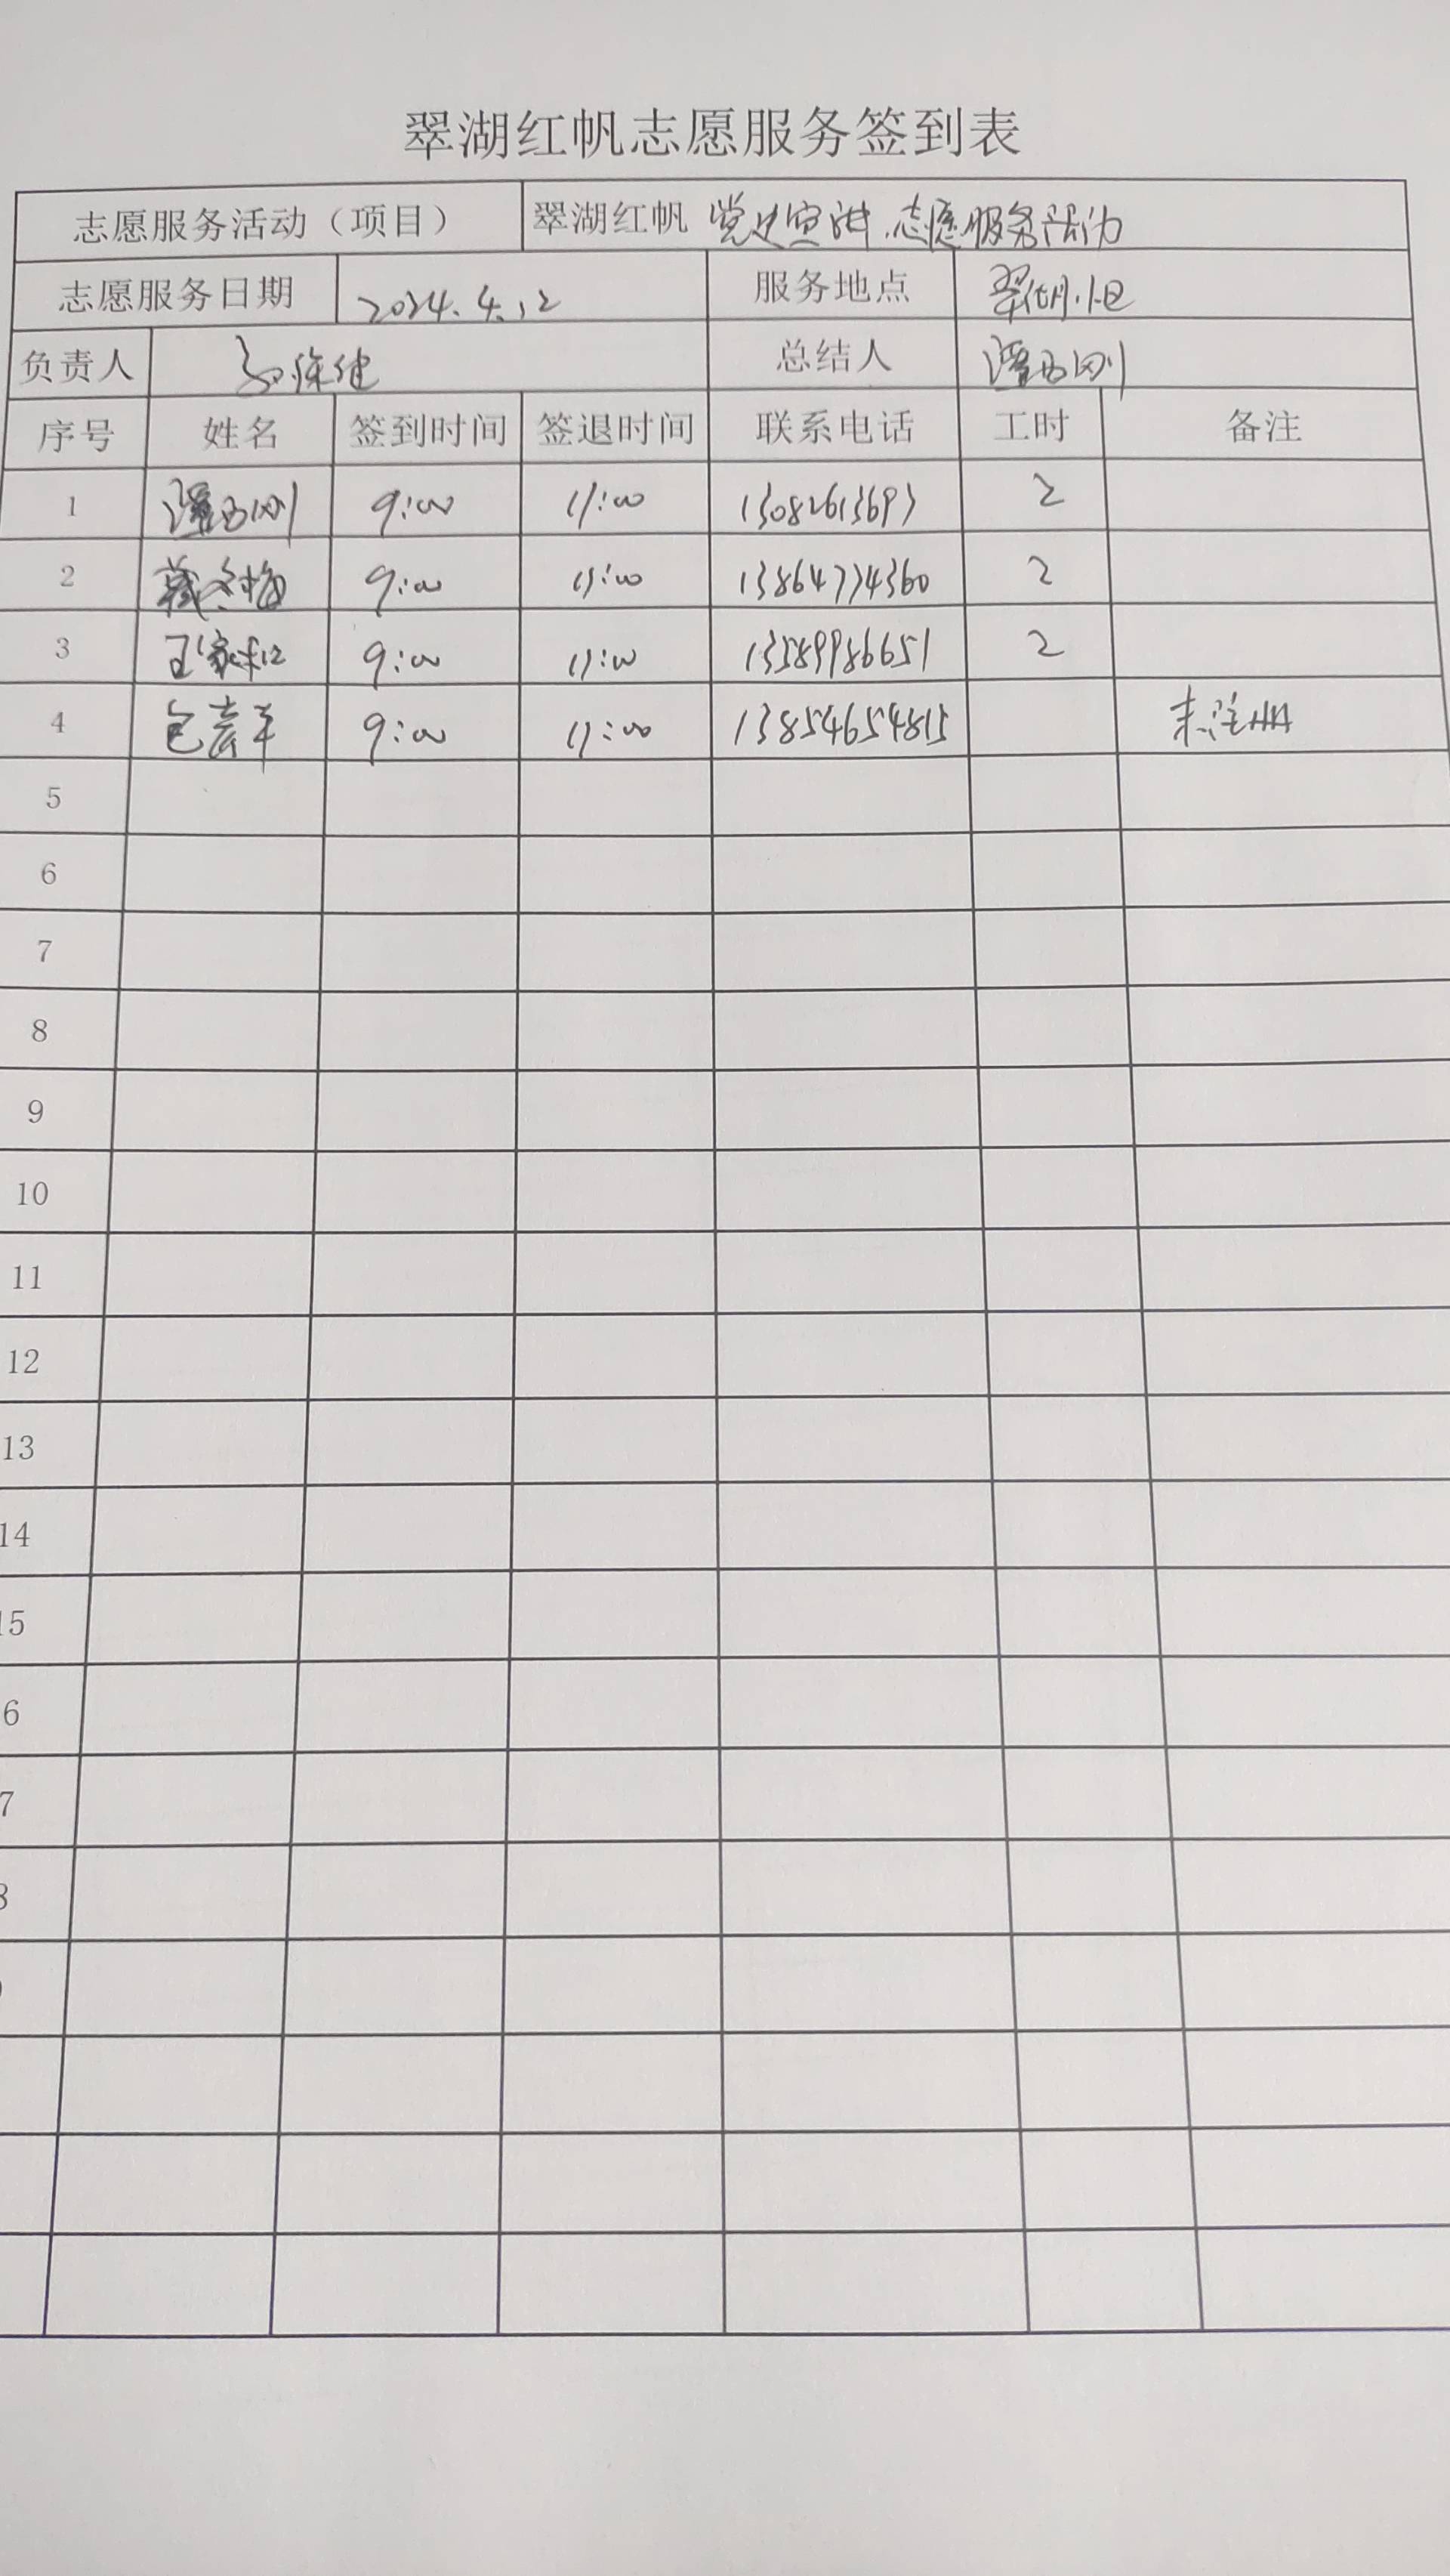 翠湖红帆志愿服务签到表
志愿服务活动（项目） 翠湖红帆 党史宣讲 志愿服务活动
志愿服务日期 2024.4.12 服务地点 翠湖小区
负责人 总结人
序号 姓名 签到时间 签退时间 联系电话 工时 备注
1 9:00 11:00 13082613693 2
2 9:00 11:00 13864774360 2
3 9:00 11:00 13589986651 2
4 9:00 11:00 13854654815 未注册
5
6
7
8
9
10
11
12
13
14
15
6
7
8